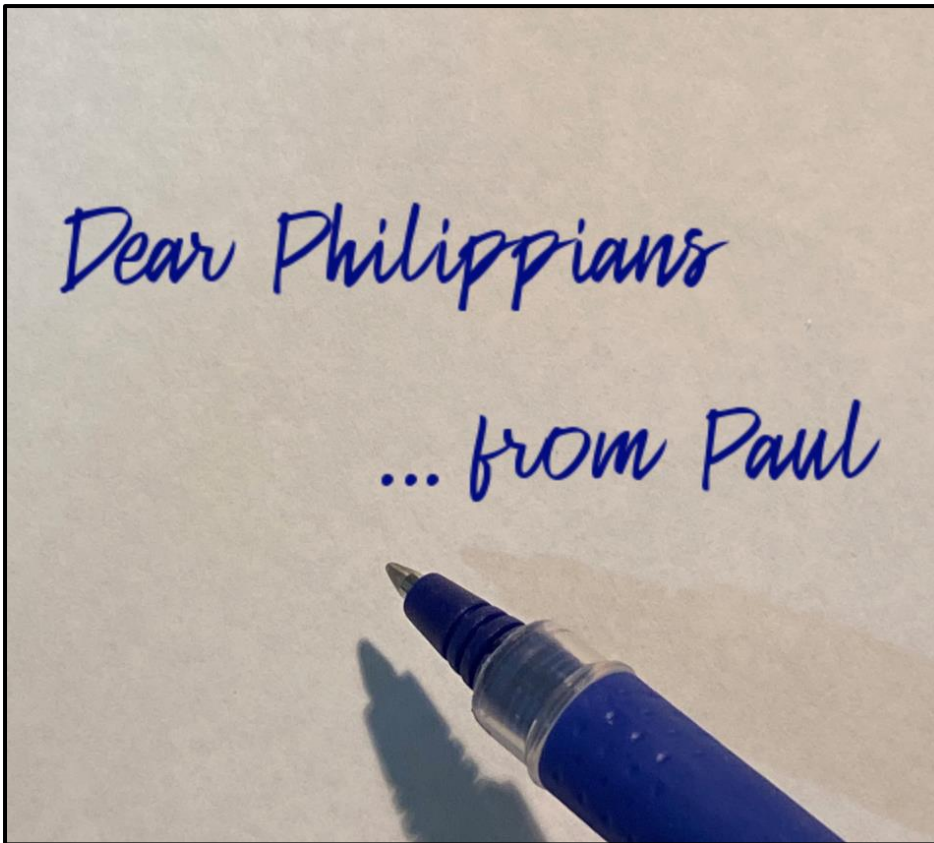 Dear Philippians
... from Paul